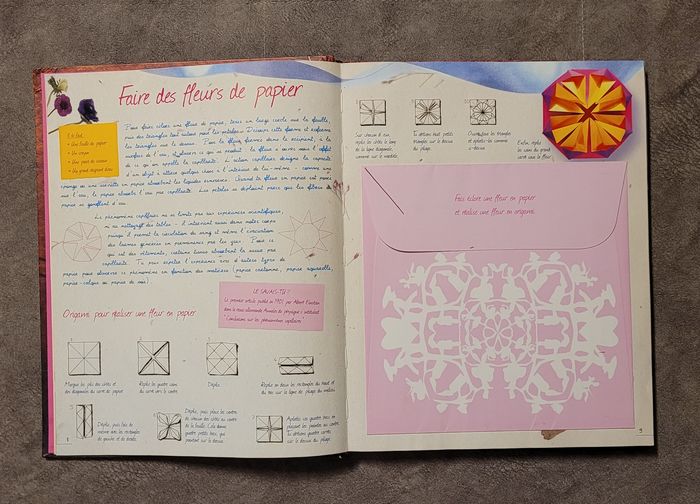 Faire des fleurs de papier
Il te faut :
• Une feuille de papier
• Un crayon
• Une paire de ciseaux
• Un grand récipient d'eau
Pour faire éclore une fleur de papier, trace un large cercle sur la feuille,
puis des triangles tout autour pour les pétales. Découpe cette forme et renferme
les triangles sur le dessus. Pose la fleur fermée dans le récipient, à la
surface de l'eau, et observe ce qui se produit : la fleur s'ouvre sous l'effet
de ce qu'on appelle la capillarité. L'action capillaire désigne la capacité
d'un objet à attirer quelque chose à l'intérieur de lui-même - comme une
éponge ou une serviette en papier absorbent les liquides renversés. Quand la fleur en papier est posée
sur l'eau, le papier absorbe l'eau par capillarité. Les pétales se déplient parce que les fibres de
papier se gonflent d'eau.
Le phénomène capillaire ne se limite pas aux expériences scientifiques,
ni au nettoyage des tables - il intervient aussi dans notre corps
puisqu'il permet la circulation du sang et même l'évacuation
des larmes
capillarité. Tu peux répéter l'expérience avec d'autres types de
papier pour observer ce phénomène en fonction des matières (papier cartonné, papier aquarelle,
papier-calque ou papier de soie).
LE SAVAIS-TU ?
Le premier article publié en 1901 par Albert Einstein
dans la revue allemande Annales de physique s'intitulait
"Conclusions sur les phénomènes capillaires".
Origami pour réaliser une fleur en papier
Marque les plis des côtés et
des diagonales du carré de papier.
Replie les quatre coins
du carré vers le centre.
Déplie.
Replie en deux les rectangles du haut et
du bas sur la ligne de pliage du milieu.
Déplie, puis fais de
même avec les rectangles
de gauche et de droite.
Déplie, puis place les centres
de chacun des côtés au centre
de la feuille. Cela donne
quatre petits becs qui
pointent sur le dessus.
Aplatis ces quatre becs en
plaçant les pointes au centre.
Tu obtiens quatre carrés
sur le dessus du pliage.
Sur chacun d'eux,
replie les côtés le long
de la ligne diagonale,
comme sur le modèle.
Tu obtiens huit petits
triangles sur le dessus
du pliage.
Ouvre tous les triangles
et aplatis-les
ci-dessus.
Enfin, replie
les coins du grand
carré sous la fleur.
Fais éclore une fleur en papier
et réalise une fleur en origami.
8
9